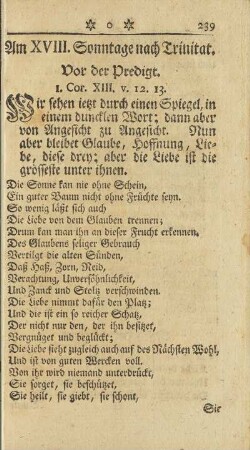 ✡ o ✡ 239
Am XVIII. Sonntage nach Trinitat.
Vor der Predigt.
1. Cor. XIII. v. 12. 13.
Wir sehen ietzt durch einen Spiegel, in
einem duncklen Wort; dann aber
von Angesicht zu Angesicht. Nun
aber bleibet Glaube, Hoffnung, Lie-
be, diese drey; aber die Liebe ist die
grösseste unter ihnen.
Die Sonne kan nie ohne Schein,
Ein guter Baum nicht ohne Früchte seyn.
So wenig läßt sich auch
Die Liebe von dem Glauben trennen;
Drum kan man ihn an dieser Frucht erkennen.
Des Glaubens seliger Gebrauch
Vertilgt die alten Sünden,
Daß Haß, Zorn, Neid,
Verachtung, Unversöhnlichkeit,
Und Zanck und Stoltz verschwinden.
Die Liebe nimmt dafür den Platz;
Und die ist ein so reicher Schatz,
Der nicht nur den, der ihn besitzet,
Vergnüget und beglückt;
Die Liebe sieht zugleich auch auf des Nächsten Wohl,
Und ist von guten Wercken voll.
Von ihr wird niemand unterdrückt,
Sie sorget, sie beschützet,
Sie heilt, sie giebt, sie schont,
Sie